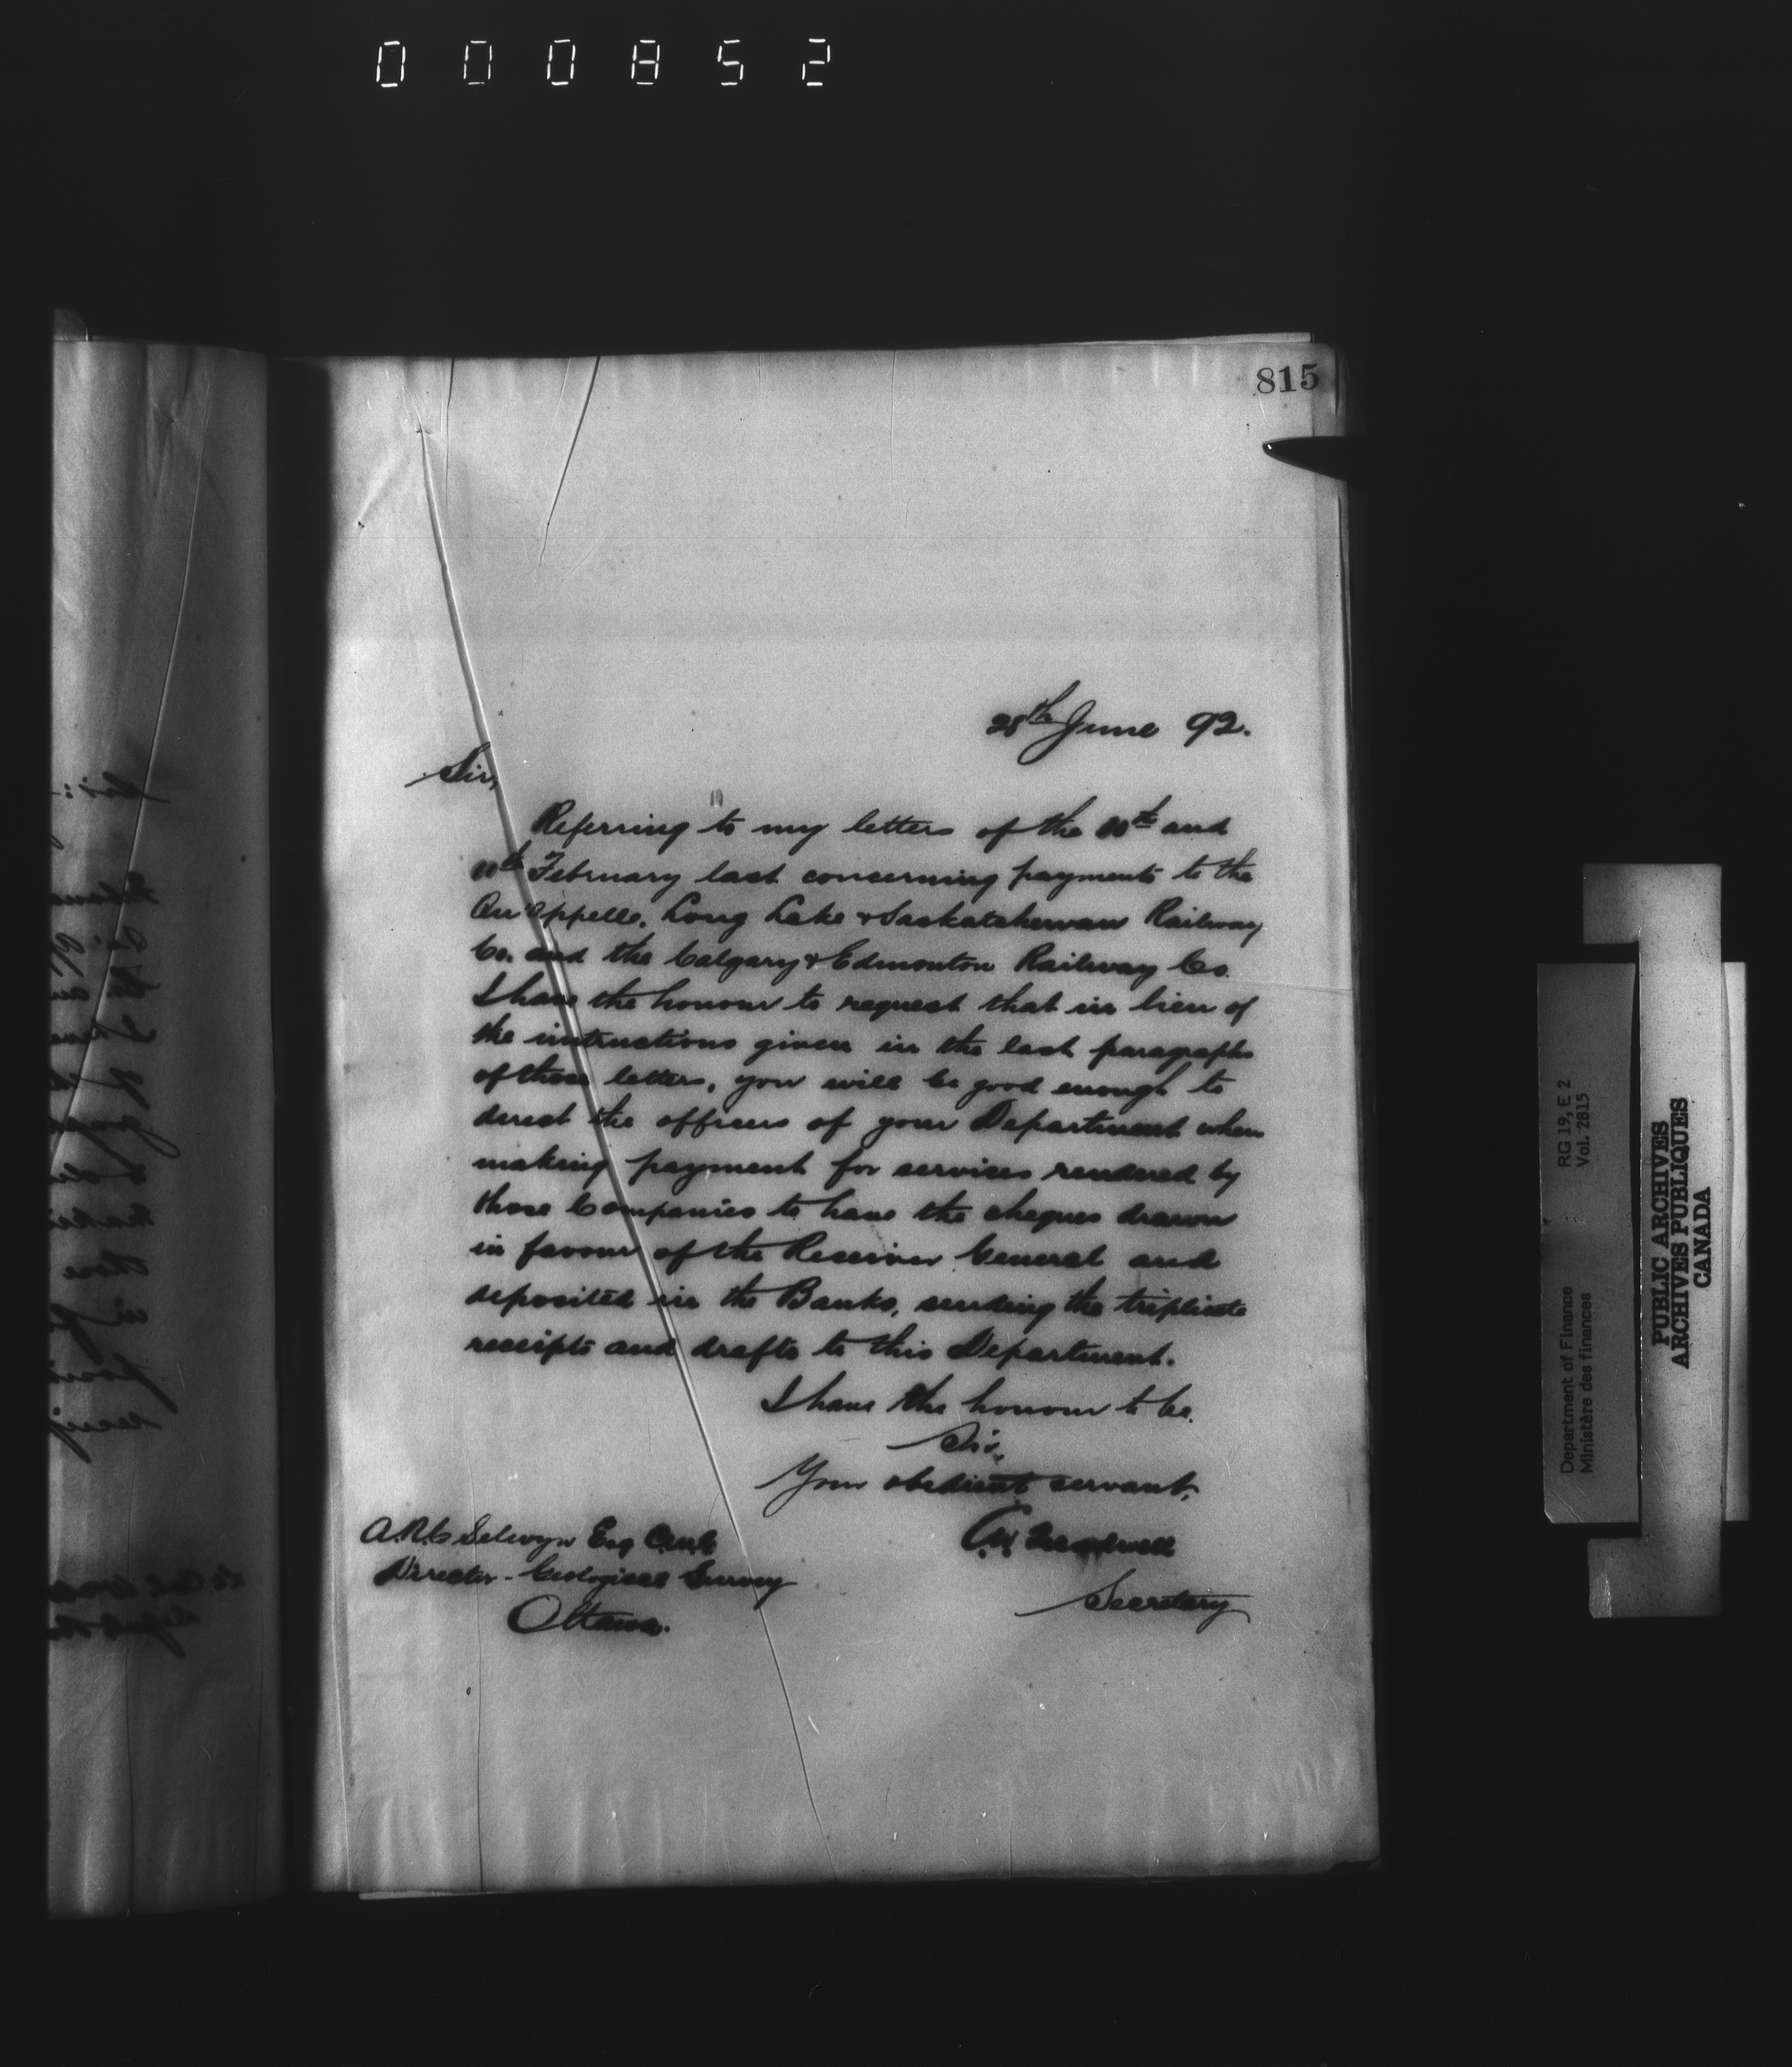 000852
815
28th June 92.
Sir,
Referring to my letters of the 10th and
11th February last concerning payments to the
Qu'Appelle, Long Lake & Saskatchewan Railway
Co. and the Calgary & Edmonton Railway Co.
I have the honour to request that in lieu of
the instructions given in the last paragraphs
of those letters, you will be good enough to
direct the officers of your Department when
making payment for services rendered by
those Companies to have the cheques drawn
in favour of the Receiver General and
deposited in the Banks, sending the triplicate
receipts and drafts to this Department.
I have the honour to be,
Sir,
Your obedient servant,
Secretary
A.R.C. Selwyn Esq C.M.G.
Director - Geological Survey
Ottawa.
RG 19, E 2
Vol. 2815
Department of Finance
Ministère des finances
PUBLIC ARCHIVES
ARCHIVES PUBLIQUES
CANADA